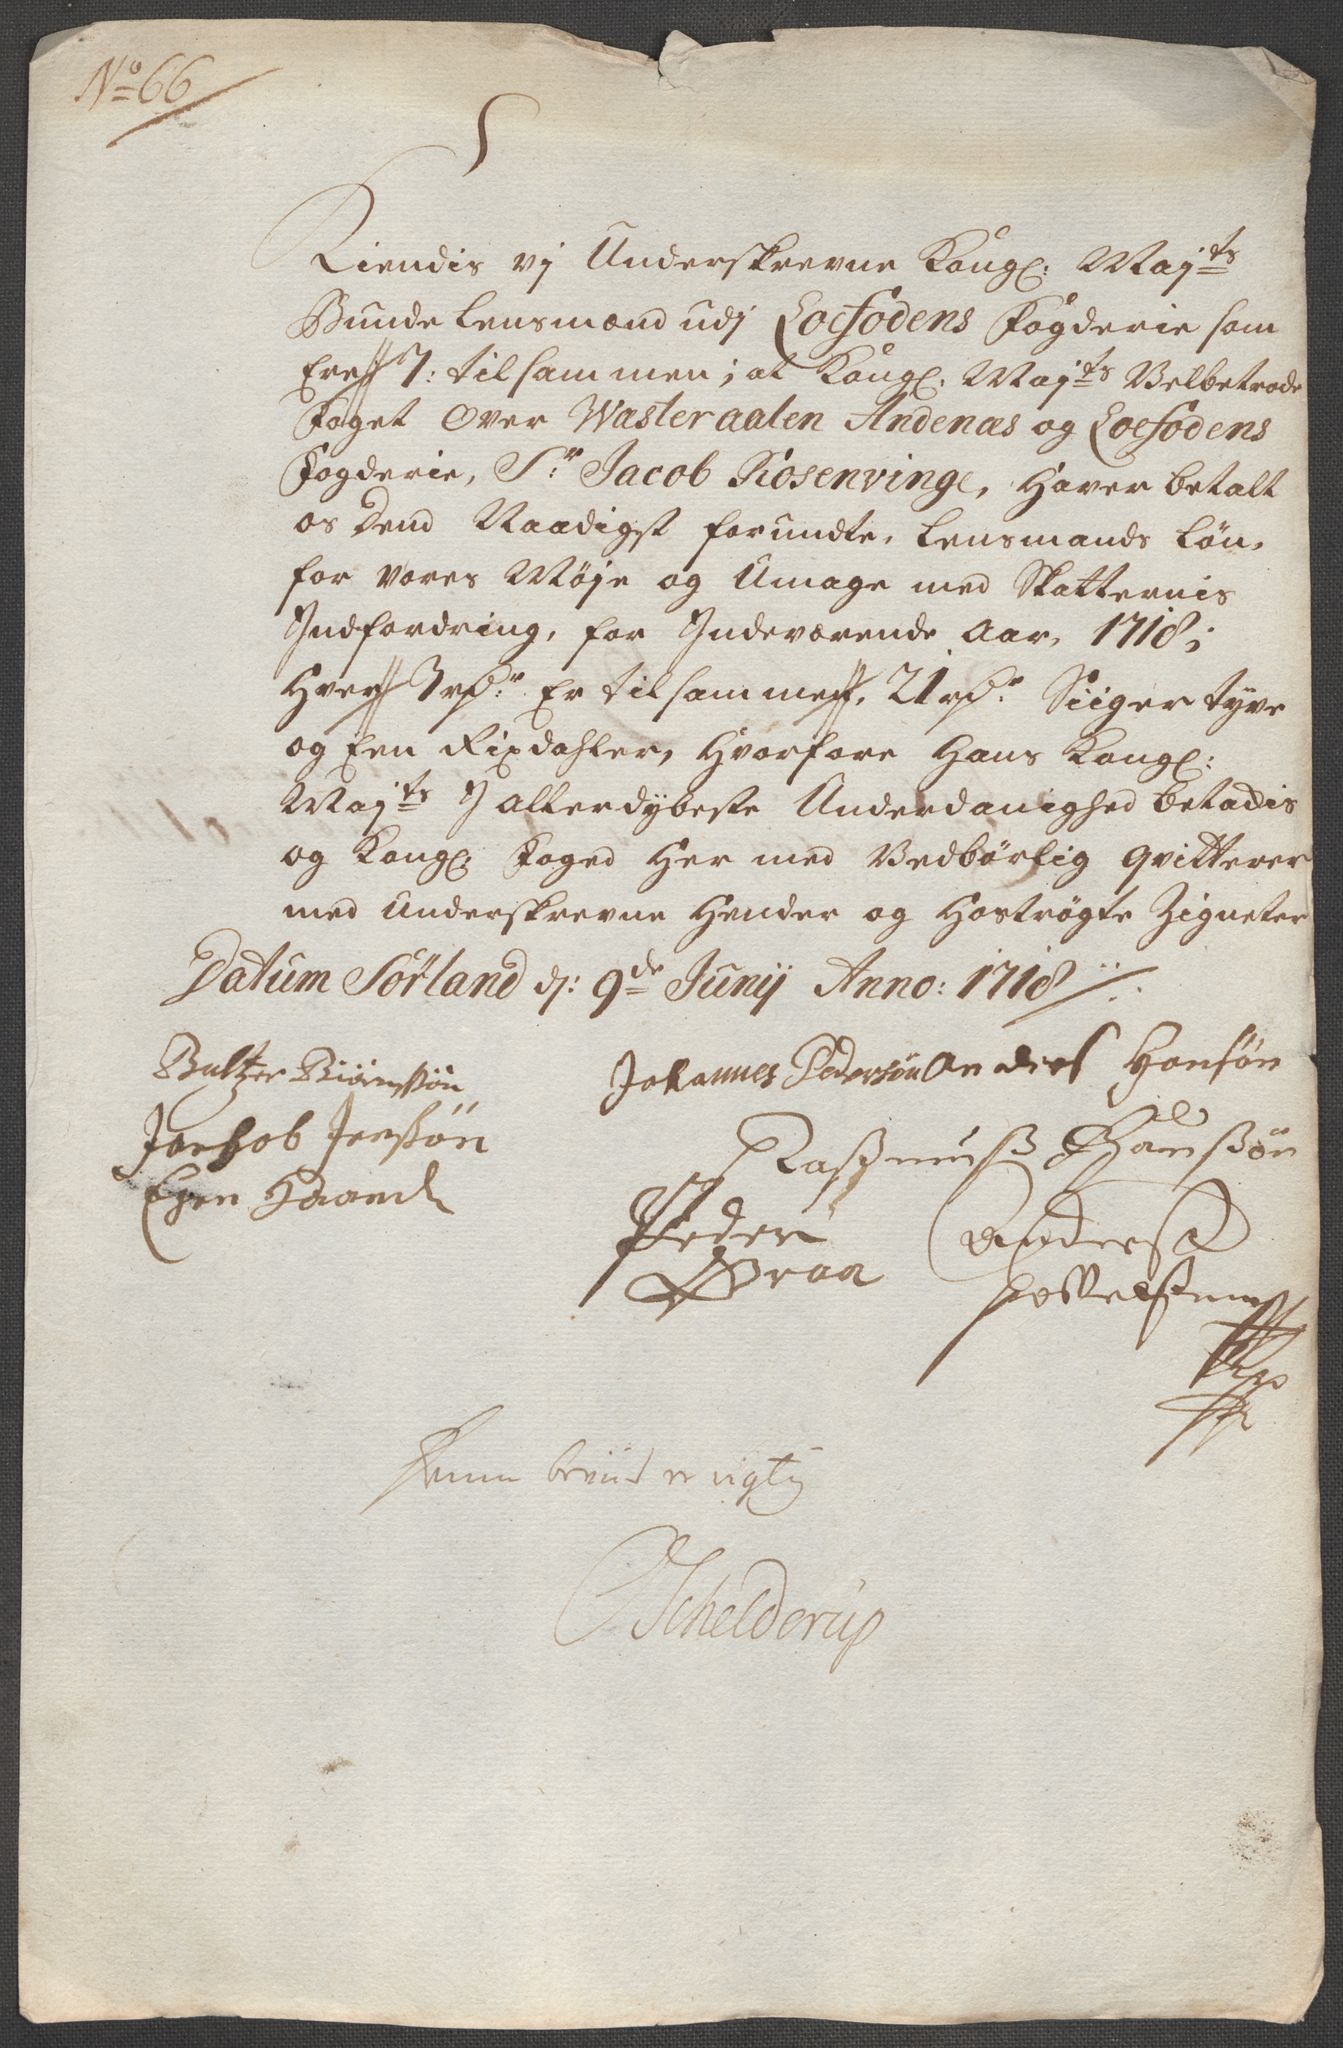 No 66
Kiendis vj Underskrevne Kongl: Maj:ts
Bunde Lensmænd udj Loefodens Fogderie som
Ere 7: tilsammen; at Kongl. Maj:ts Velbetrode
Foget Over Wasteraalen Andenæs og Loefodens
Fogderie, Sr: Jacob Rosenvinge, Haver betalt
os Dend Naadigst forundte, Lensmands Løn,
for vores Møje og Umage med Skatternis
Indfordring, for Indeværende Aar, 1718;
Hver 3 rd:r Er tilsammen, 21 rd:r Siiger tyve
og Een Rixdahler, Hvorfore Hans Kongl:
Maj:ts I allerdybeste Underdanighed betackis
og Kongl: Foged Her med Vedbørlig qvitterer
med Underskrevne Hender og Hoströgte Zigneter
Datum Sörland d: 9de Junij Anno: 1718
Baltzer Biörnssön Johannes Pedersön Anders Hansön
Jackob Jenssön Rasmus Hanssön
Egen Haand Peder Anders
Graa
Denne beviis er rigtig
Schelderup